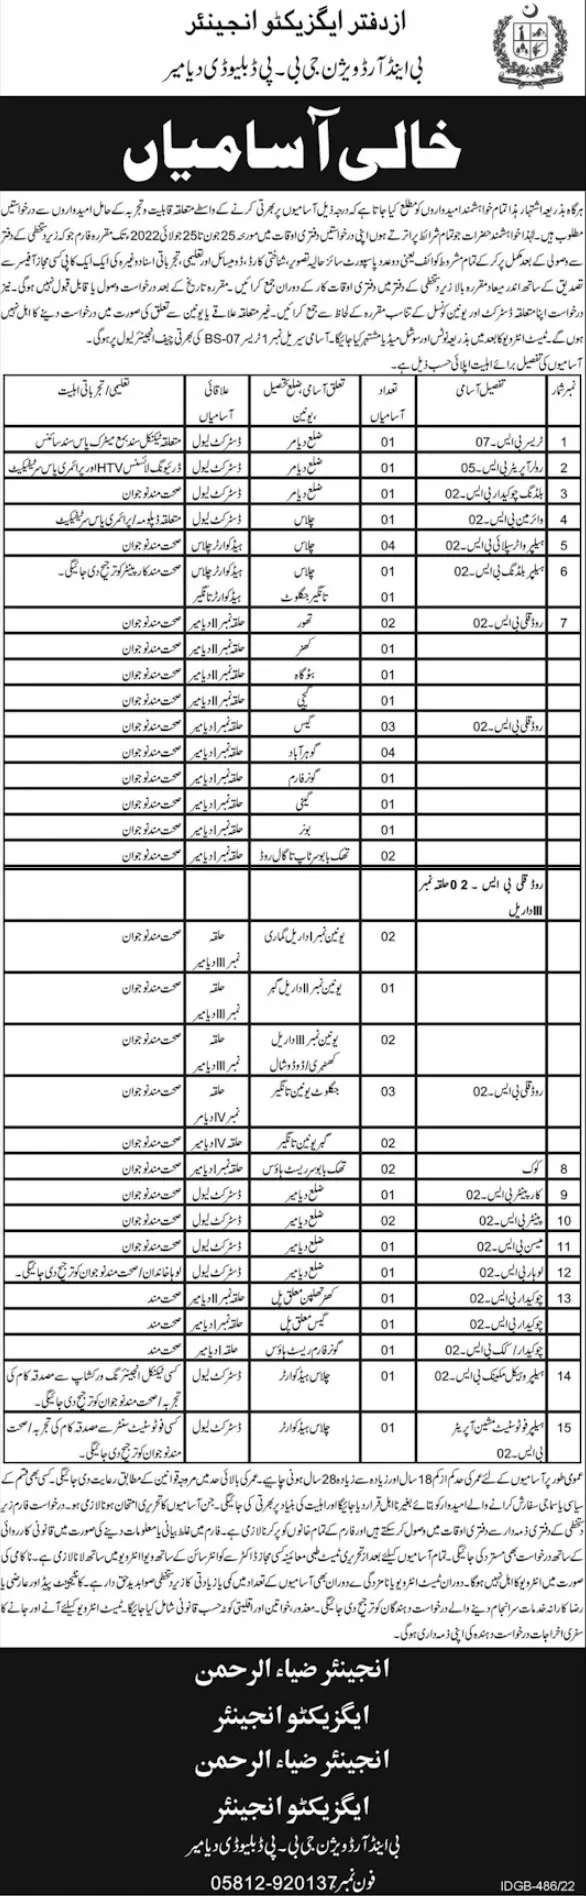 ازدفتر ایگزیکٹو انجینئر
بی اینڈ آر ڈویژن جی بی۔ پی ڈبلیو ڈی دیامیر
خالی آسامیاں
ہرگاہ بذریعہ اشتہار ہذا تمام خواہشمند امیدواروں کو مطلع کیا جاتا ہے کہ درجہ ذیل آسامیوں پر بھرتی کرنے کے واسطے متعلقہ قابلیت و تجربہ کے حامل امیدواروں سے درخواستیں
مطلوب ہیں۔ لہٰذا خواہشمند حضرات جو تمام شرائط پر اترتے ہوں اپنی درخواستیں دفتری اوقات میں مورخہ 25 جون تا 25 جولائی 2022ء تک مقررہ فارم جو کہ زیر دستخطی کے دفتر
سے وصولی کے بعد مکمل پر کر کے تمام مشروط کوائف یعنی دو عدد پاسپورٹ سائز حالیہ تصویر، شناختی کارڈ، ڈومیسائل اور تعلیمی، تجرباتی اسناد وغیرہ کی ایک ایک کاپی کسی مجاز آفیسر سے
تصدیق کے ساتھ اندر میعاد مقررہ بالا زیر دستخطی کے دفتر میں دفتری اوقات کار کے دوران جمع کرائیں۔ مقررہ تاریخ کے بعد درخواست وصول یا قابل قبول نہیں ہوگی۔ نیز
درخواست اپنا متعلقہ ڈسٹرکٹ اور یونین کونسل کے تناسب مقررہ کے لحاظ سے جمع کرائیں۔ غیر متعلقہ علاقے یا یونین سے تعلق کی صورت میں درخواست دینے کا اہل نہیں
ہوں گے۔ ٹیسٹ انٹرویو کا بعد میں بذریعہ نوٹس اور سوشل میڈیا مشتہر کیا جائیگا۔ آسامی سیریل نمبر 1 ٹریسر BS-07 کی بھرتی چیف انجینئر لیول پر ہوگی۔
آسامیوں کی تفصیل برائے اہلیت اپلائی حسب ذیل ہے۔
نمبر شمار تفصیل آسامی تعداد آسامیاں تعلق آسامی ضلع/تحصیل، یونین علاقائی آسامیاں تعلیمی/تجرباتی اہلیت
1 ٹریسر بی ایس۔07 01 ضلع دیامر ڈسٹرکٹ لیول متعلقہ ٹیکنکل سند بمع میٹرک پاس سند سائنس
2 رولر آپریٹر بی ایس۔05 01 ضلع دیامر ڈسٹرکٹ لیول ڈرئیونگ لائسنس HTV اور پرائمری پاس سرٹیفکیٹ
3 بلڈنگ چوکیدار بی ایس۔02 01 ضلع دیامر ڈسٹرکٹ لیول صحت مند نوجوان
4 وائرمین بی ایس۔02 01 چلاس ڈسٹرکٹ لیول متعلقہ ڈپلومہ/پرائمری پاس سرٹیفکیٹ
5 ہیلپر واٹر سپلائی بی ایس۔02 04 چلاس ہیڈ کوارٹر چلاس صحت مند نوجوان
6 ہیلپر بلڈنگ بی ایس۔02 01 چلاس ہیڈ کوارٹر چلاس صحت مند کارپینٹر کو ترجیح دی جائیگی۔
01 تانگیر جگلوٹ ہیڈ کوارٹر تانگیر
7 روڈ قلی بی ایس۔02 02 تھور حلقہ نمبر II دیامیر صحت مند نوجوان
01 کھنر حلقہ نمبر II دیامیر صحت مند نوجوان
01 بٹوگاہ حلقہ نمبر II دیامیر صحت مند نوجوان
01 گچی حلقہ نمبر II دیامیر صحت مند نوجوان
روڈ قلی بی ایس۔02 03 گیس حلقہ نمبر I دیامیر صحت مند نوجوان
04 گوہر آباد حلقہ نمبر I دیامیر صحت مند نوجوان
01 گونر فارم حلقہ نمبر I دیامیر صحت مند نوجوان
01 گینی حلقہ نمبر I دیامیر صحت مند نوجوان
01 بونر حلقہ نمبر I دیامیر صحت مند نوجوان
02 تھک بابوسر ٹاپ تا گال روڈ حلقہ نمبر I دیامیر صحت مند نوجوان
روڈ قلی بی ایس۔02 حلقہ نمبر
III داریل
02 یونین نمبر I داریل گماری حلقہ نمبر III دیامیر صحت مند نوجوان
01 یونین نمبر II داریل گبر حلقہ نمبر III دیامیر صحت مند نوجوان
02 یونین نمبر III داریل کھنبری/ڈوڈوشال حلقہ نمبر III دیامیر صحت مند نوجوان
روڈ قلی بی ایس۔02 03 جگلوٹ یونین تانگیر حلقہ نمبر IV دیامر صحت مند نوجوان
02 گبر یونین تانگیر حلقہ IV دیامیر صحت مند نوجوان
8 کوک 02 تھک بابوسر ریسٹ ہاؤس حلقہ نمبر I دیامیر صحت مند نوجوان
9 کارپینٹر بی ایس۔02 01 ضلع دیامیر ڈسٹرکٹ لیول صحت مند نوجوان
10 پینٹر بی ایس۔02 02 ضلع دیامیر ڈسٹرکٹ لیول صحت مند نوجوان
11 میسن بی ایس۔02 01 ضلع دیامیر ڈسٹرکٹ لیول صحت مند نوجوان
12 لوہار بی ایس۔02 01 ضلع دیامیر ڈسٹرکٹ لیول لوہا خاندان/صحت مند نوجوان کو ترجیح دی جائیگی۔
13 چوکیدار بی ایس۔02 01 کھنر تھلپن معلق پل حلقہ نمبر II دیامیر صحت مند
چوکیدار بی ایس۔02 01 گیس معلق پل حلقہ نمبر I دیامیر صحت مند
چوکیدار/کک بی ایس۔02 01 گونر فارم ریسٹ ہاؤس حلقہ I دیامیر صحت مند
14 ہیلپر وہیکل مکینک بی ایس۔02 01 چلاس ہیڈ کوارٹر ڈسٹرکٹ لیول کسی ٹیکنکل انجینئرنگ ورکشاپ سے مصدقہ کام کی تجربہ/صحت مند نوجوان کو ترجیح دی جائیگی۔
15 ہیلپر فوٹوسٹیٹ مشین آپریٹر بی ایس۔02 01 چلاس ہیڈ کوارٹر ڈسٹرکٹ لیول کسی فوٹوسٹیٹ سنٹر سے مصدقہ کام کی تجربہ/صحت مند نوجوان کو ترجیح دی جائیگی۔
عمومی طور پر آسامیوں کے لئے عمر کی حد کم از کم 18 سال اور زیادہ سے زیادہ 28 سال ہونی چاہیے۔ عمر کی بالائی حد میں مروجہ قوانین کے مطابق رعایت دی جائیگی۔ کسی بھی قسم کے
سیاسی یا سماجی سفارش کرانے والے امیدوار کو بتائے بغیر نا اہل قرار دیا جائیگا اور اہلیت کی بنیاد پر بھرتی کی جائیگی۔ جن آسامیوں کا تحریری امتحان ہونا لازمی ہو۔ درخواست فارم زیر
دستخطی کے دفتری ذمہ دار سے دفتری اوقات میں وصول کر سکتے ہیں اور فارم کے تمام خانوں کو پر کرنا لازمی ہے۔ فارم میں غلط بیانی یا معلومات دینے کی صورت میں قانونی کارروائی
کے ساتھ درخواست بھی مسترد کی جائیگی۔ تمام آسامیوں کیلئے بعد از تحریری ٹیسٹ طبی معائنہ کسی مجاز ڈاکٹر سے کوائنر سائن کے ساتھ ویو انٹرویو میں ساتھ لانا لازمی ہے۔ ناکامی کی
صورت میں انٹرویو کا اہل نہیں ہوگا۔ دوران ٹیسٹ انٹرویو یا نامزدگی سے دوران بھی آسامیوں کے تعداد میں کمی یا زیادتی کا زیر دستخطی صوابدید حق دار ہے۔ کانٹیجنٹ پیڈ اور عارضی یا
رضا کارانہ خدمات سرانجام دینے والے درخواست دہندگان کو ترجیح دی جائیگی۔ معذور، خواتین اور اقلیتی کوٹہ حسب قانونی شامل کیا جائیگا۔ ٹیسٹ انٹرویو کیلئے آنے اور جانے کا
سفری اخراجات درخواست دہندہ کی اپنی ذمہ داری ہوگی۔
انجینئر ضیاء الرحمن
ایگزیکٹو انجینئر
انجینئر ضیاء الرحمن
ایگزیکٹو انجینئر
بی اینڈ آر ڈویژن جی بی۔ پی ڈبلیو ڈی دیامیر
فون نمبر: 05812-920137
IDGB-486/22